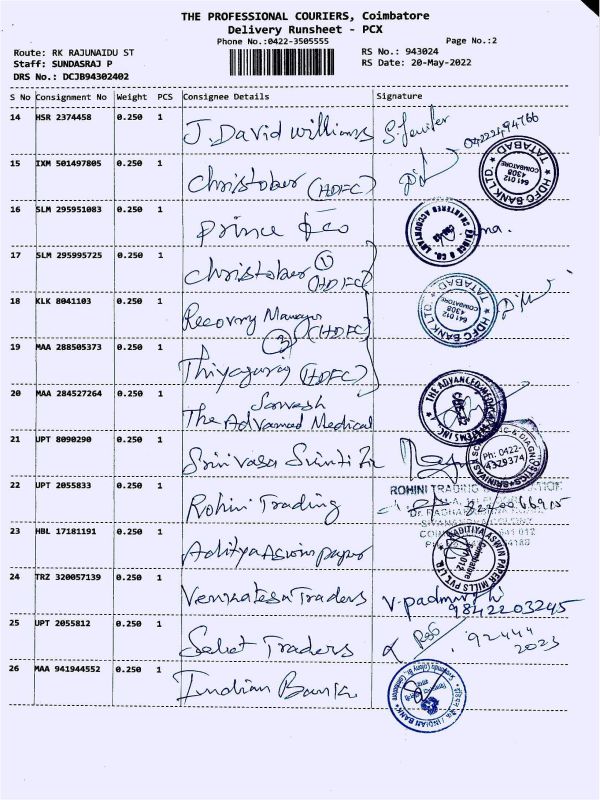 THE PROFESSIONAL COURIERS, Coimbatore
Delivery Runsheet - PCX
Phone No.:0422-3505555
Page No.:2
Route: RK RAJUNAIDU ST
Staff: SUNDASRAJ P
DRS No.: DCJB94302402
RS No.: 943024
RS Date: 20-May-2022
S No Consignment No Weight PCS Consignee Details Signature
14 HSR 2374458 0.250 1 J. David williams
15 IXM 501497805 0.250 1 Christober (HDFC)
HDFC BANK LTD. TATABAD COIMBATORE 641 012 4308
16 SLM 295951083 0.250 1 Prince & co
PRINCE & CO. CHARTERED ACCOUNTANT
17 SLM 295995725 0.250 1 Christober ① (HDFC)
18 KLK 8041103 0.250 1 Recovery Manager (HDFC)
HDFC BANK LTD. TATABAD COIMBATORE 641 012 4308
19 MAA 288505373 0.250 1 Thiyagaraj (HDFC)
20 MAA 284527264 0.250 1 Sarvesh
The Advanced Medical
THE ADVANCED MEDICAL SYSTEMS INC.
21 UPT 8090290 0.250 1 Srinivasa
Ph: 0422-4329374
22 UPT 2055833 0.250 1 Rohini Trading
ROHINI TRADING
23 HBL 17181191 0.250 1 Aditya Aswin paper
ADITIYA ASWIN PAPER MILLS PVT. LTD. Coimbatore
24 TRZ 320057139 0.250 1 Venkatesa Traders
9842203245
25 UPT 2055812 0.250 1 Select Traders
92444
2023
26 MAA 941944552 0.250 1 Indian Bank
INDIAN BANK